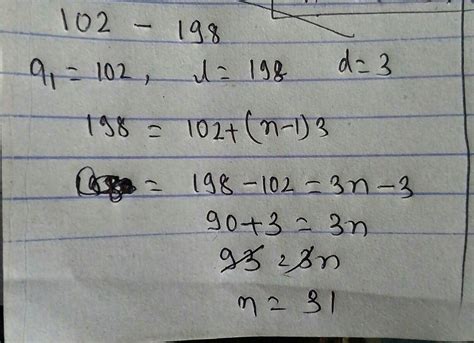 102 - 198
a₁ = 102, l = 198 d = 3
198 = 102+(n-1)3
= 198 - 102 = 3n - 3
90+3 = 3n
93 = 3n
n = 31